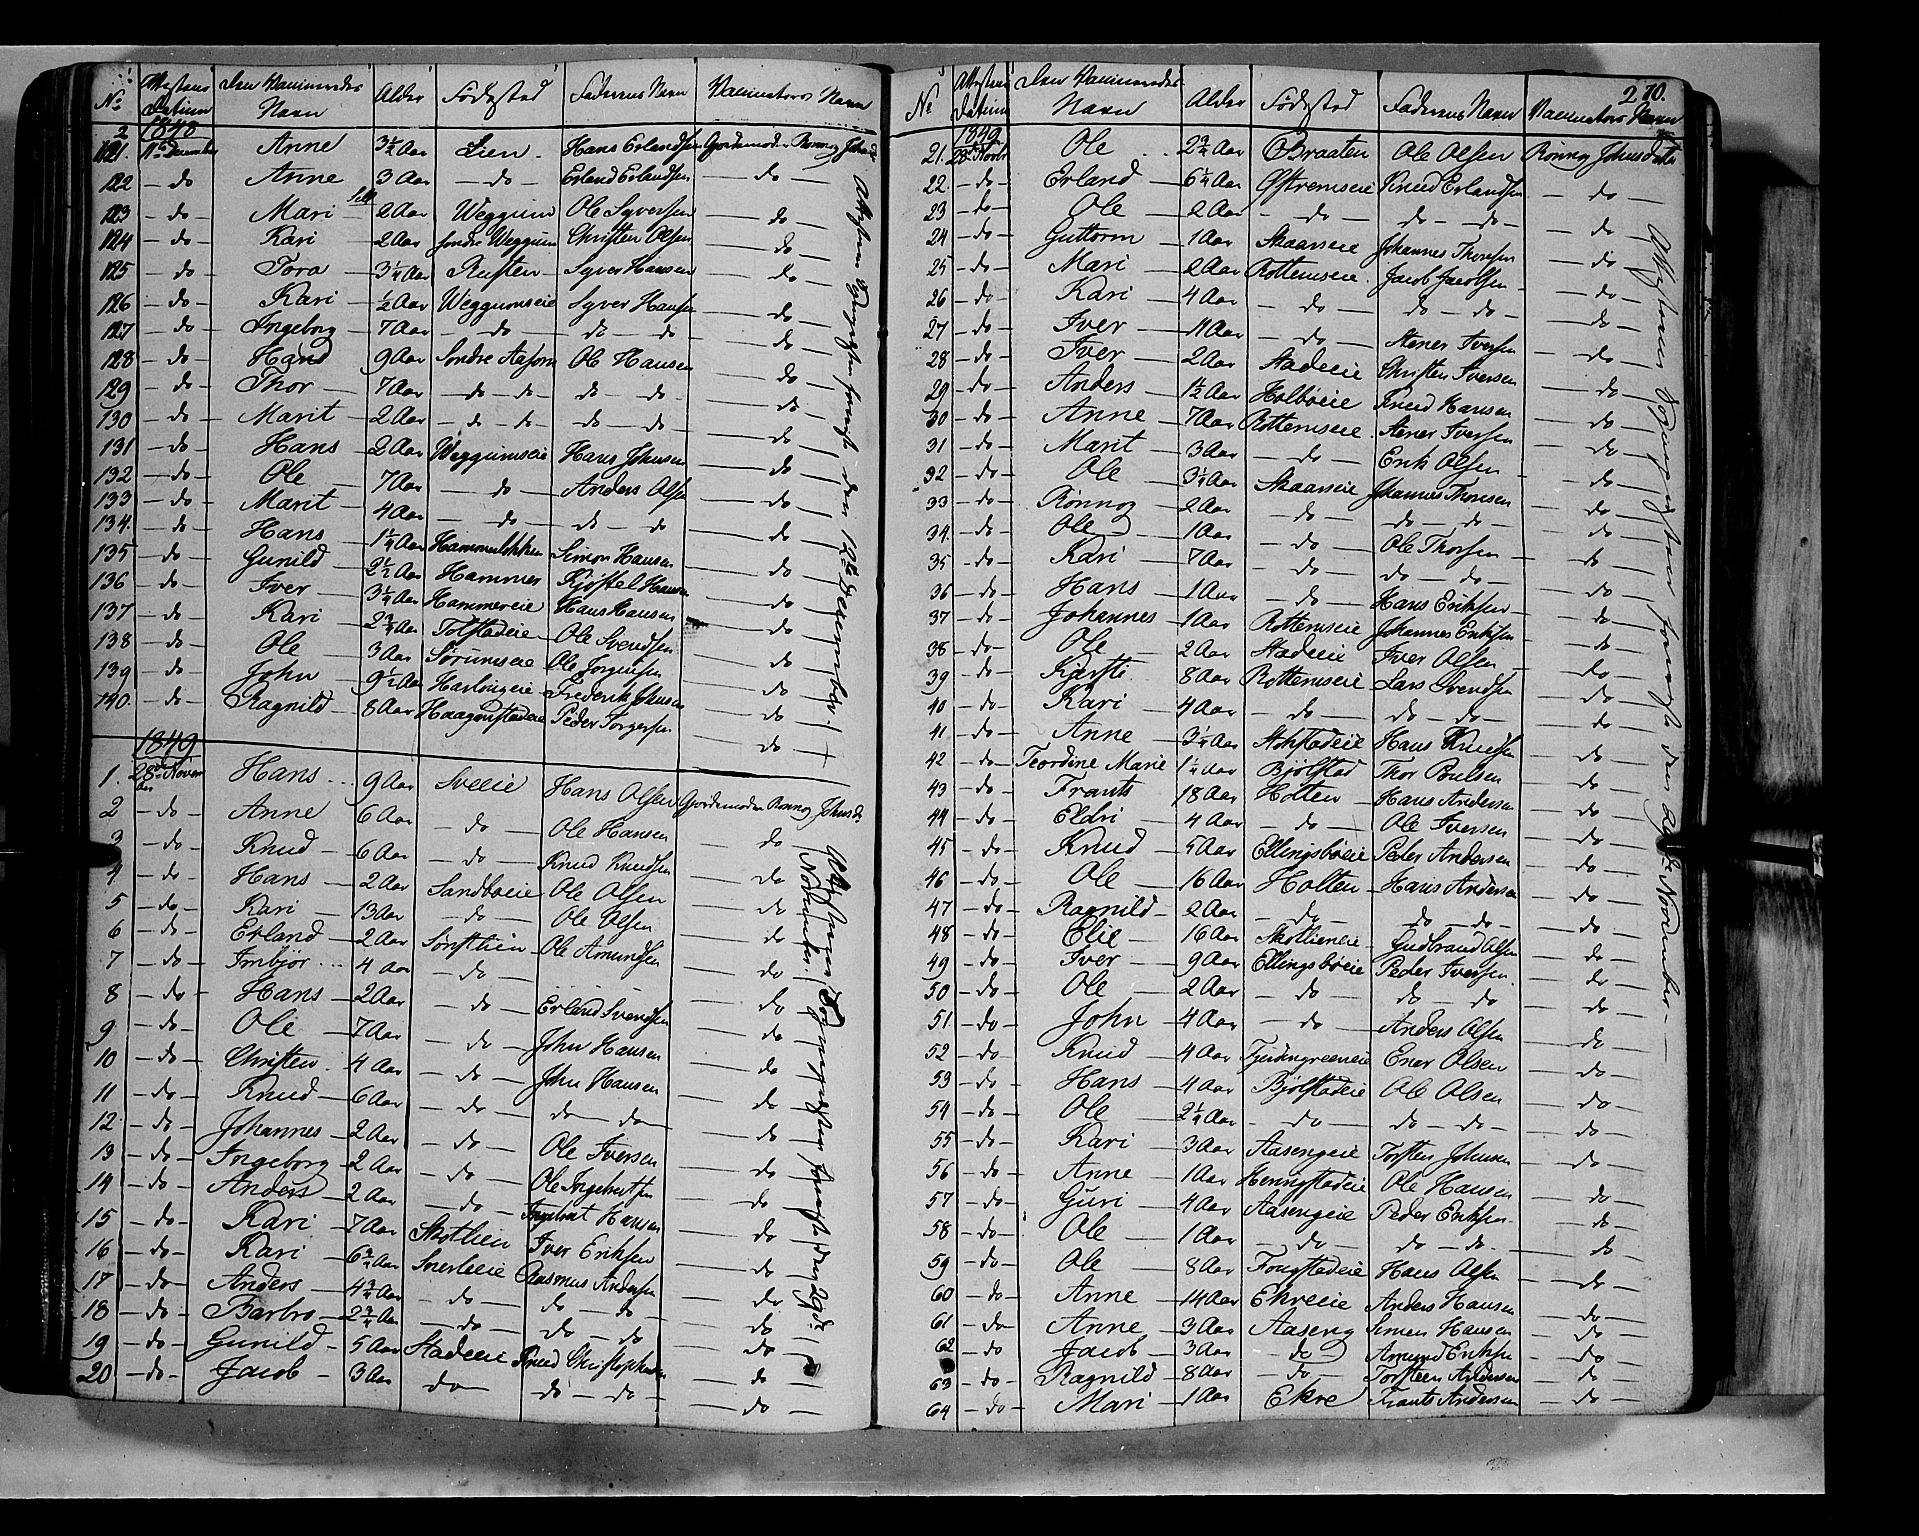 No Attestens Datum Den Vaccineredes Navn Alder Fødested Faderens Navn Vaccinators Navn
1848
121. December Anne 3½ Aar Lien Hans Erlandsen Gjordemoder Rønnog Johnsd.
122 do Anne 3 Aar do Erland Erlandsen do
123 do Mari 2 Aar Veggum Ole Syversen do
124 do Kari 2 Aar søndre Veggum Christen Olsen do
125 do Tora 3¼ Aar Rusten Syver Hansen do
126 do Kari ½ Aar Veggumseie Syver Hansen do
127 do Ingeborg 7 Aar do do do do
128 do Hans 9 Aar Søndre Ole Hansen do
129 do Thor 7 Aar do do do do do
130 do Marit 2 Aar do do do do do
131 do Hans 2 Aar Veggumseie Hans Johnsen do
132 do Ole 7 Aar do Anders Olsen do
133 do Marit 4 Aar do do do do
134 do Hans 1¼ Aar Simon Hansen do
135 do Gunild 2½ Aar Hammer Kjøstel Hansen do
136 do Iver 3¼ Aar Hammereie Hans Hansen do
137 do Kari 2¾ Aar Tolstadeie Ole Svendsen do
138 do Ole 3 Aar Sørumseie Ole Jørgensen do
139 do John 9½ Aar Frederik Johnsen do
140. do Ragnild 8 Aar Haagenstadeie Peder Torgersen do
Attesten forevist den 12te December.
1849
1. 28de November Hans 9 Aar Sveeie Hans Olsen Gjordemoder Rønnog Johnsd.
2 do Anne 6 Aar do Ole Hansen do
3 do Knud 6 Aar do Knud Knudsen do
4 do Hans 2 Aar Sandboeie Ole Olsen do
5 do Kari 13 Aar do Ole Olsen do
6 do Erland 2 Aar Sørstlien Ole Amundsen do
7 do Imbjor 4 Aar do do
8 do Hans 2 Aar do Erland Svendsen do
9 do Ole 7 Aar do John Hansen do
10 do Christen 4 Aar do John Hansen do
11 do Knud 6 Aar do do do do
12 do Johannes 2 Aar do Ole Iversen do
13 do Ingeborg 2 Aar do Ole Ingebretsen do
14 do Anders 2 Aar do Hansen do
15 do Kari 7 Aar Skotlien Iver Eriksen do
16 do Kari 6¾ Aar Snerleeie Rasmus Andersen do
17 do Anders 4¾ Aar do do do do
18 do Barbro 2¾ Aar do do do do
19 do Gunild 5 Aar Stadeeie Knud Christophersen do
20 do Jacob 3 Aar do do do do
November. forevist den 29de
270.
No Attestens Datum Den Vaccineredes Navn Alder Fødested Faderens Navn Vaccinators Navn
1849
21. 28de Novbr Ole 2¾ Aar Braaten Ole Olsen Rønnog Johnsdatter
22 do Erland 6¼ Aar Øftremseie Knud Erlandsen do
23 do Ole 2 Aar do do do do
24 do Guttorm 1 Aar Skaarseie Johannes Thoresen do
25 do Mari 2 Aar Rottemseie Jacob Jacobsen do
26 do Kari 4 Aar do do do do
27 do Iver 11 Aar do Stener Iversen do
28 do Iver 2 Aar Stadeeie Christen Iversen do
29 do Anders 1½ Aar Holbøeie Knud Hansen do
30 do Anne 7 Aar Rottemseie Stener Iversen do
31 do Marit 3 Aar do Erik Olsen do
32 do Ole 3¼ Aar Skaarseie Johannes Thoresen do
33 do Rønnog 2 Aar do do do do
34. do Ole 1 Aar do Ole Thorsen do
35 do Kari 7 Aar do do do do
36 do Hans 1 Aar do Hans Eriksen do
37 do Johannes 1 Aar Rottemseie Johannes Eriksen do
38 do Ole 2 Aar Stadeeie Iver Olsen do
39 do Kjersti 8 Aar Rottemseie Lars Svendsen do
40 do Kari 4 Aar do do do do
41 do Anne 3¼ Aar Hans Knudsen do
42 do Teordine Marie 1¼ Aar Bjølstad Thor Poulsen do
43 do Frants 18 Aar Holten Hans Andersen do
44 do Eldri 4 Aar do Ole Iversen do
45 do Knud 5 Aar Ellingsbøeie Peder Andersen do
46 do Ole 16 Aar Holten Hans Andersen do
47 do Ragnild 2 Aar do do do do
48 do Elie 16 Aar Skotlieneie Gudbrand Olsen do
49 do Iver 9 Aar Ellingsbøeie Peder Iversen do
50 do Ole 2 Aar do do do do
51 do John 4 Aar do Anders Olsen do
52 do Knud 4 Aar Ener Olsen do
53 do Hans 4 Aar Bjølstadeie Ole Olsen do
54 do Ole 2¼ Aar do do do do
55 do Kari 3 Aar Aasengeie Torsten Johnsen do
56 do Anne 1 Aar Henningstadeie Ole Hansen do
57 do Guri 4 Aar Aasengeie Peder Eriksen do
58 do Ole 1 Aar do do do do
59 do Ole 8 Aar Hans Olsen do
60 do Anne 14 Aar Ekreeie Anders Hansen do
61 do Anne 3 Aar Aaseng Simen Hansen do
62 do Jacob 3 Aar do Amund Eriksen do
63 do Ragnild 8 Aar do Torsteen Andersen do
64 do Mari 1 Aar Ekre Frants Andersen do
forevist den 29de November